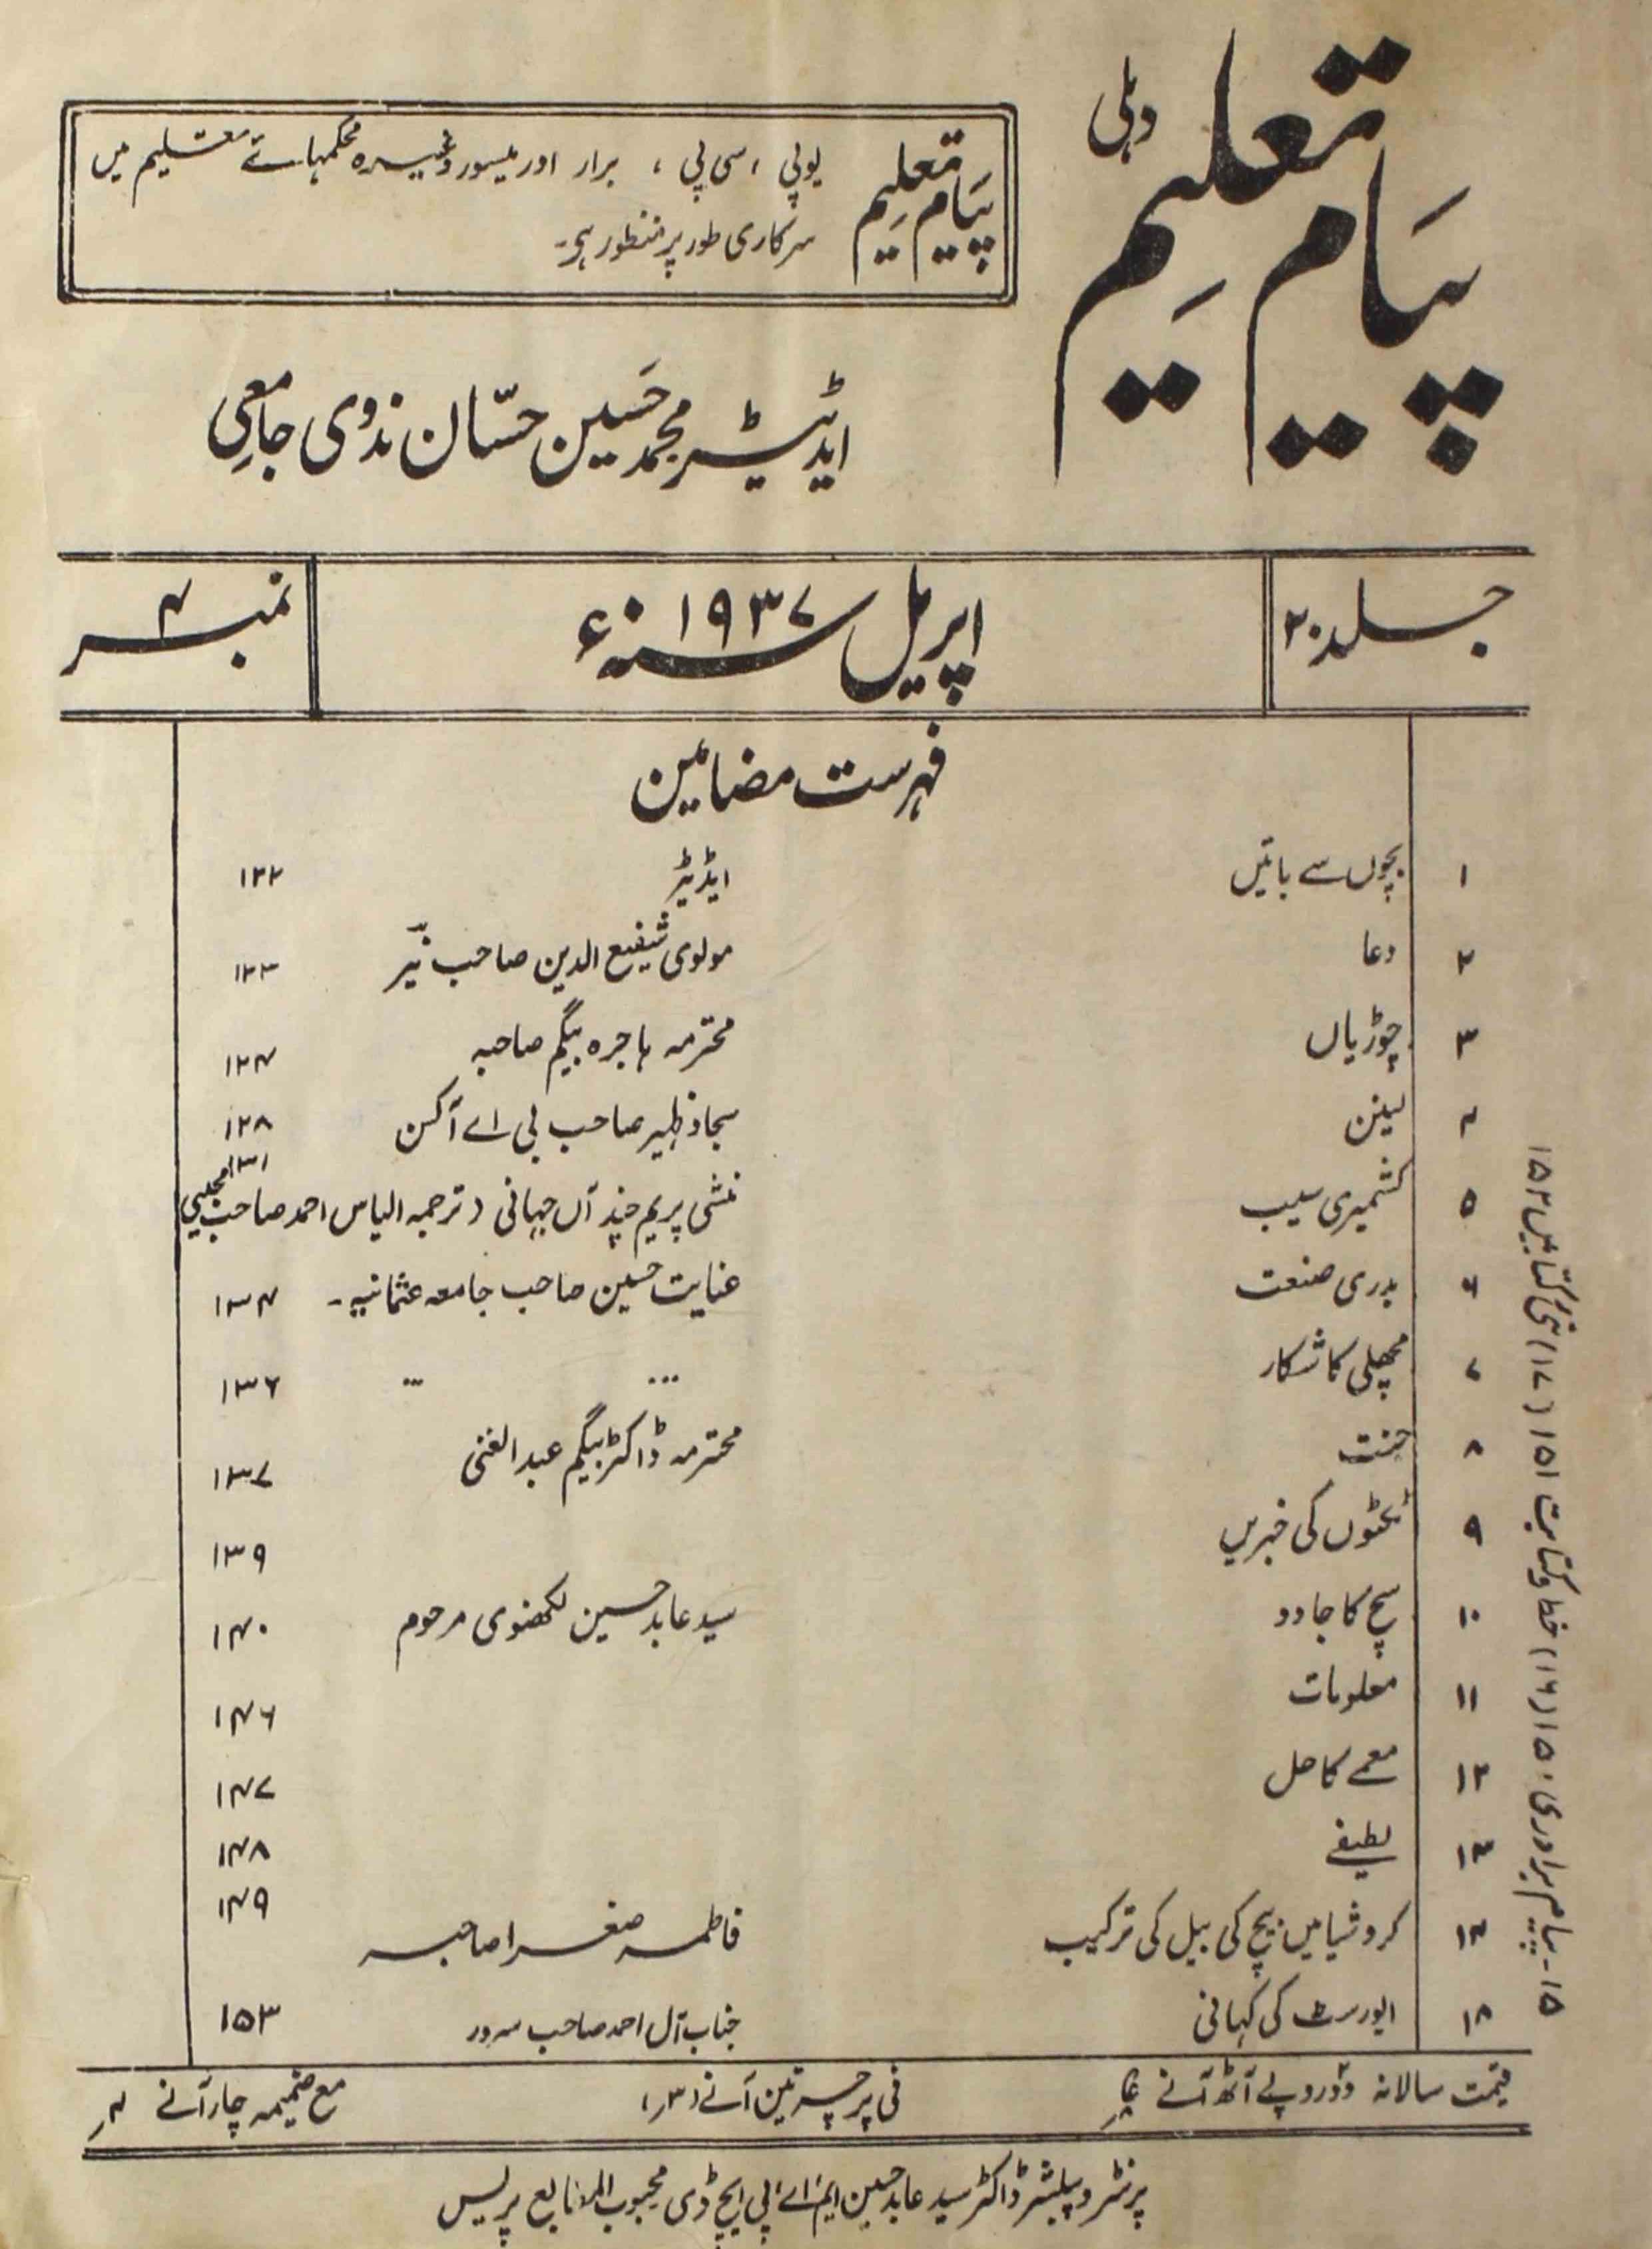 پیام تعلیم دہلی
پیام تعلیم یوپی، سی پی، برار اور میسور وغیرہ محکمہائے تعلیم میں
سرکاری طور پر منظور ہے۔
ایڈیٹر محمد حسین حسّان ندوی جامعی
جلد ۲۰ اپریل سنہ ۱۹۳۷ء نمبر ۴
فہرست مضامین
۱ بچوں سے باتیں ایڈیٹر ۱۲۲
۲ دعا مولوی شفیع الدین صاحب نیّر ۱۲۳
۳ چوڑیاں محترمہ ہاجرہ بیگم صاحبہ ۱۲۴
۴ لینن سجاد ظہیر صاحب بی اے آکسن ۱۲۸
۵ کشمیری سیب منشی پریم چند آں جہانی (ترجمہ الیاس احمد صاحب مجیبی ۱۳۱
۶ بدری صنعت عنایت حسین صاحب جامعہ عثمانیہ۔ ۱۳۴
۷ مچھلی کا شکار ... ... ۱۳۶
۸ جنت محترمہ ڈاکٹر بیگم عبد الغنی ۱۳۷
۹ ٹکٹوں کی خبریں ۱۳۹
۱۰ سچ کا جادو سید عابد حسین لکھنوی مرحوم ۱۴۰
۱۱ معلومات ۱۴۶
۱۲ معمے کا حل ۱۴۷
۱۳ لطیفے ۱۴۸
۱۴ کروشیا میں بیچ کی بیل کی ترکیب فاطمہ صغرا صاحبہ ۱۴۹
۱۸ ایورسٹ کی کہانی جناب آل احمد صاحب سرور ۱۵۳
۱۵۔ پیام برادری ۱۵۰ (۱۶) خط و کتابت ۱۵۱ (۱۷) نئی کتابیں ۱۵۲
قیمت سالانہ دو روپے آٹھ آنے فی پرچہ تین آنے (۳ر) مع ضمیمہ چار آنے ۴ر
پرنٹر و پبلشر ڈاکٹر سید عابد حسین ایم اے پی ایچ ڈی محبوب المطابع پریس